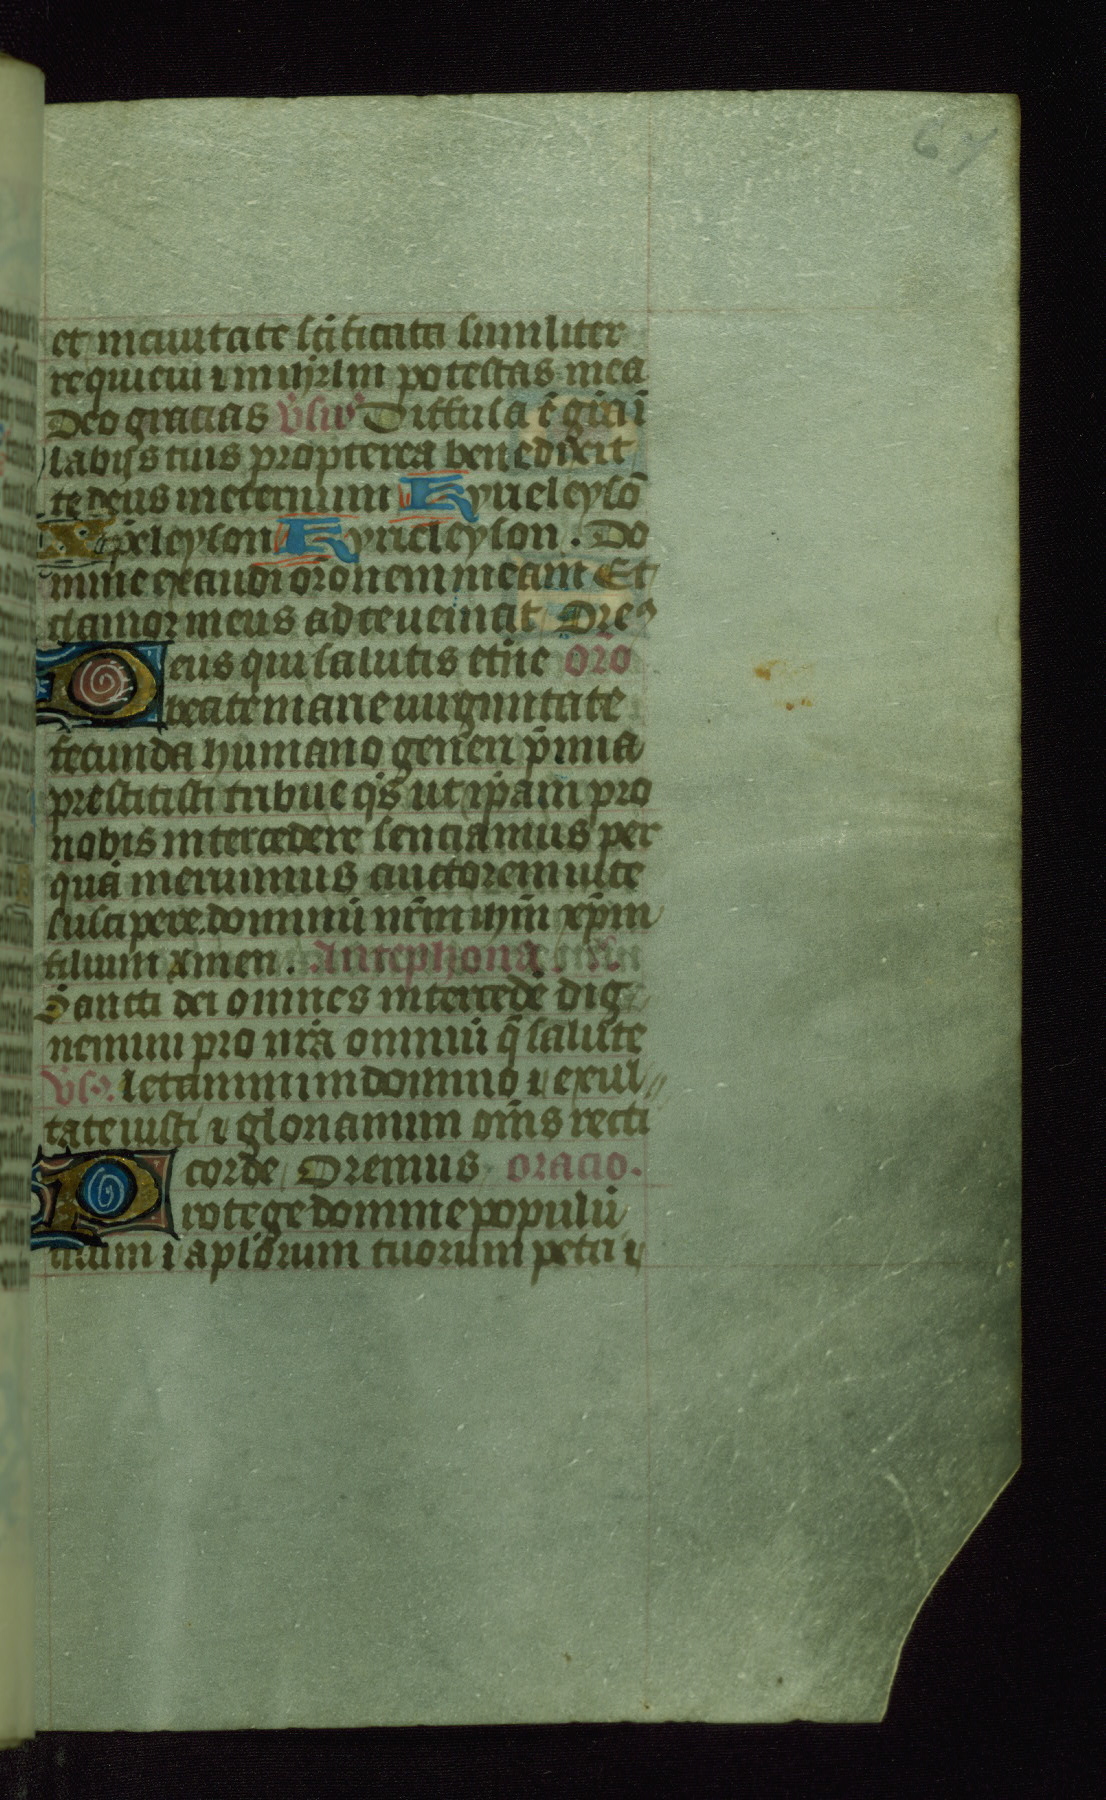 67
et in ciuitate sc̄ificata similiter
requieui ⁊ in ihrlm potestas mea
Deo gracias v̄sus Diffusa ē gr̄a ī
labijs tuis propterea benedixit
te deus in eternum Kyrieleysō
Xp̄eleyson Kyrieleyson . Do
mine exaudi orōnem meam Et
clamor meus ad te ueniat Oreꝰ
Deus qui salutis etn̄e oro
beate marie uirginitate
fecunda humano generi p̄mia
prestitisti tribue qs̄ ut ip̄am pro
nobis intercedere senciamus per
quā meruimus auctorem uite
suscipere dominū nr̄m ihm̄ xp̄m
filium Amen . Antephona
Sancti dei omnes intercedē dig
nemini pro nr̄a omniū q̄ salute
v̄s. letamini in domino ⁊ exul
tate iusti ⁊ gloriamini om̄s recti
corde Oremus oracio.
Protege domine populū
tuum ⁊ aplōrum tuorum petri ⁊